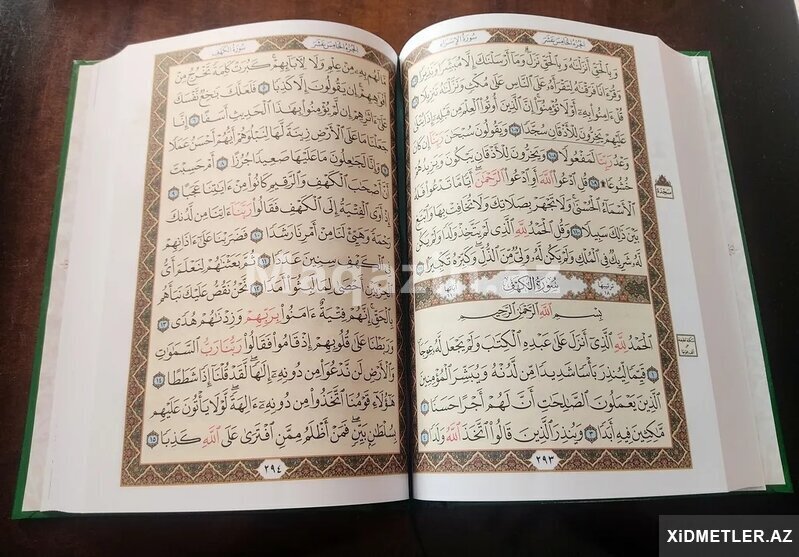 الجزء الخامس عشر
سورة الإسراء
وَبِالْحَقِّ أَنزَلْنَاهُ وَبِالْحَقِّ نَزَلَ وَمَا أَرْسَلْنَاكَ إِلَّا مُبَشِّرًا وَنَذِيرًا ١٠٥
وَقُرْآنًا فَرَقْنَاهُ لِتَقْرَأَهُ عَلَى النَّاسِ عَلَى مُكْثٍ وَنَزَّلْنَاهُ تَنزِيلًا ١٠٦
قُلْ آمِنُوا بِهِ أَوْ لَا تُؤْمِنُوا إِنَّ الَّذِينَ أُوتُوا الْعِلْمَ مِن قَبْلِهِ إِذَا يُتْلَى
عَلَيْهِمْ يَخِرُّونَ لِلْأَذْقَانِ سُجَّدًا ١٠٧ وَيَقُولُونَ سُبْحَانَ رَبِّنَا إِن كَانَ
وَعْدُ رَبِّنَا لَمَفْعُولًا ١٠٨ وَيَخِرُّونَ لِلْأَذْقَانِ يَبْكُونَ وَيَزِيدُهُمْ
خُشُوعًا ۩ ١٠٩ قُلِ ادْعُوا اللَّهَ أَوِ ادْعُوا الرَّحْمَنَ أَيًّا مَّا تَدْعُوا فَلَهُ
سجدة
الْأَسْمَاءُ الْحُسْنَى وَلَا تَجْهَرْ بِصَلَاتِكَ وَلَا تُخَافِتْ بِهَا وَابْتَغِ
بَيْنَ ذَلِكَ سَبِيلًا ١١٠ وَقُلِ الْحَمْدُ لِلَّهِ الَّذِي لَمْ يَتَّخِذْ وَلَدًا وَلَمْ يَكُن
لَّهُ شَرِيكٌ فِي الْمُلْكِ وَلَمْ يَكُن لَّهُ وَلِيٌّ مِّنَ الذُّلِّ وَكَبِّرْهُ تَكْبِيرًا ١١١
سورة الكهف
بِسْمِ اللَّهِ الرَّحْمَنِ الرَّحِيمِ
الْحَمْدُ لِلَّهِ الَّذِي أَنزَلَ عَلَى عَبْدِهِ الْكِتَابَ وَلَمْ يَجْعَل لَّهُ عِوَجًا ١
قَيِّمًا لِّيُنذِرَ بَأْسًا شَدِيدًا مِّن لَّدُنْهُ وَيُبَشِّرَ الْمُؤْمِنِينَ
الَّذِينَ يَعْمَلُونَ الصَّالِحَاتِ أَنَّ لَهُمْ أَجْرًا حَسَنًا ٢
مَّاكِثِينَ فِيهِ أَبَدًا ٣ وَيُنذِرَ الَّذِينَ قَالُوا اتَّخَذَ اللَّهُ وَلَدًا ٤
٢٩٣
الجزء الخامس عشر
سورة الكهف
مَّا لَهُم بِهِ مِنْ عِلْمٍ وَلَا لِآبَائِهِمْ كَبُرَتْ كَلِمَةً تَخْرُجُ مِنْ
أَفْوَاهِهِمْ إِن يَقُولُونَ إِلَّا كَذِبًا ٥ فَلَعَلَّكَ بَاخِعٌ نَّفْسَكَ
عَلَى آثَارِهِمْ إِن لَّمْ يُؤْمِنُوا بِهَذَا الْحَدِيثِ أَسَفًا ٦ إِنَّا
جَعَلْنَا مَا عَلَى الْأَرْضِ زِينَةً لَّهَا لِنَبْلُوَهُمْ أَيُّهُمْ أَحْسَنُ عَمَلًا
٧ وَإِنَّا لَجَاعِلُونَ مَا عَلَيْهَا صَعِيدًا جُرُزًا ٨ أَمْ حَسِبْتَ
أَنَّ أَصْحَابَ الْكَهْفِ وَالرَّقِيمِ كَانُوا مِنْ آيَاتِنَا عَجَبًا ٩
إِذْ أَوَى الْفِتْيَةُ إِلَى الْكَهْفِ فَقَالُوا رَبَّنَا آتِنَا مِن لَّدُنكَ
رَحْمَةً وَهَيِّئْ لَنَا مِنْ أَمْرِنَا رَشَدًا ١٠ فَضَرَبْنَا عَلَى آذَانِهِمْ
فِي الْكَهْفِ سِنِينَ عَدَدًا ١١ ثُمَّ بَعَثْنَاهُمْ لِنَعْلَمَ أَيُّ
الْحِزْبَيْنِ أَحْصَى لِمَا لَبِثُوا أَمَدًا ١٢ نَّحْنُ نَقُصُّ عَلَيْكَ نَبَأَهُم
بِالْحَقِّ إِنَّهُمْ فِتْيَةٌ آمَنُوا بِرَبِّهِمْ وَزِدْنَاهُمْ هُدًى ١٣
وَرَبَطْنَا عَلَى قُلُوبِهِمْ إِذْ قَامُوا فَقَالُوا رَبُّنَا رَبُّ السَّمَاوَاتِ
وَالْأَرْضِ لَن نَّدْعُوَ مِن دُونِهِ إِلَهًا لَّقَدْ قُلْنَا إِذًا شَطَطًا ١٤
هَؤُلَاءِ قَوْمُنَا اتَّخَذُوا مِن دُونِهِ آلِهَةً لَّوْلَا يَأْتُونَ عَلَيْهِم
بِسُلْطَانٍ بَيِّنٍ فَمَنْ أَظْلَمُ مِمَّنِ افْتَرَى عَلَى اللَّهِ كَذِبًا ١٥
٢٩٤
Maqazal.az
XiDMETLER.AZ